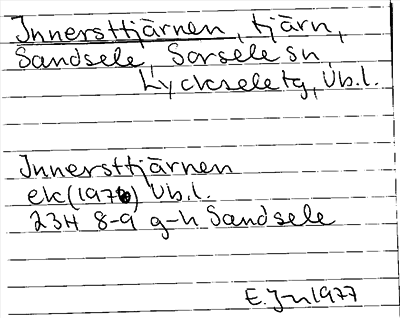 Innersttjärnen, tjärn,
Sandsele, Sorsele sn,
Lycksele tg, Vb.l.
Innersttjärnen
ek (1976) Vb.l.
23H 8-9 g-h Sandsele
E. J-n 1977